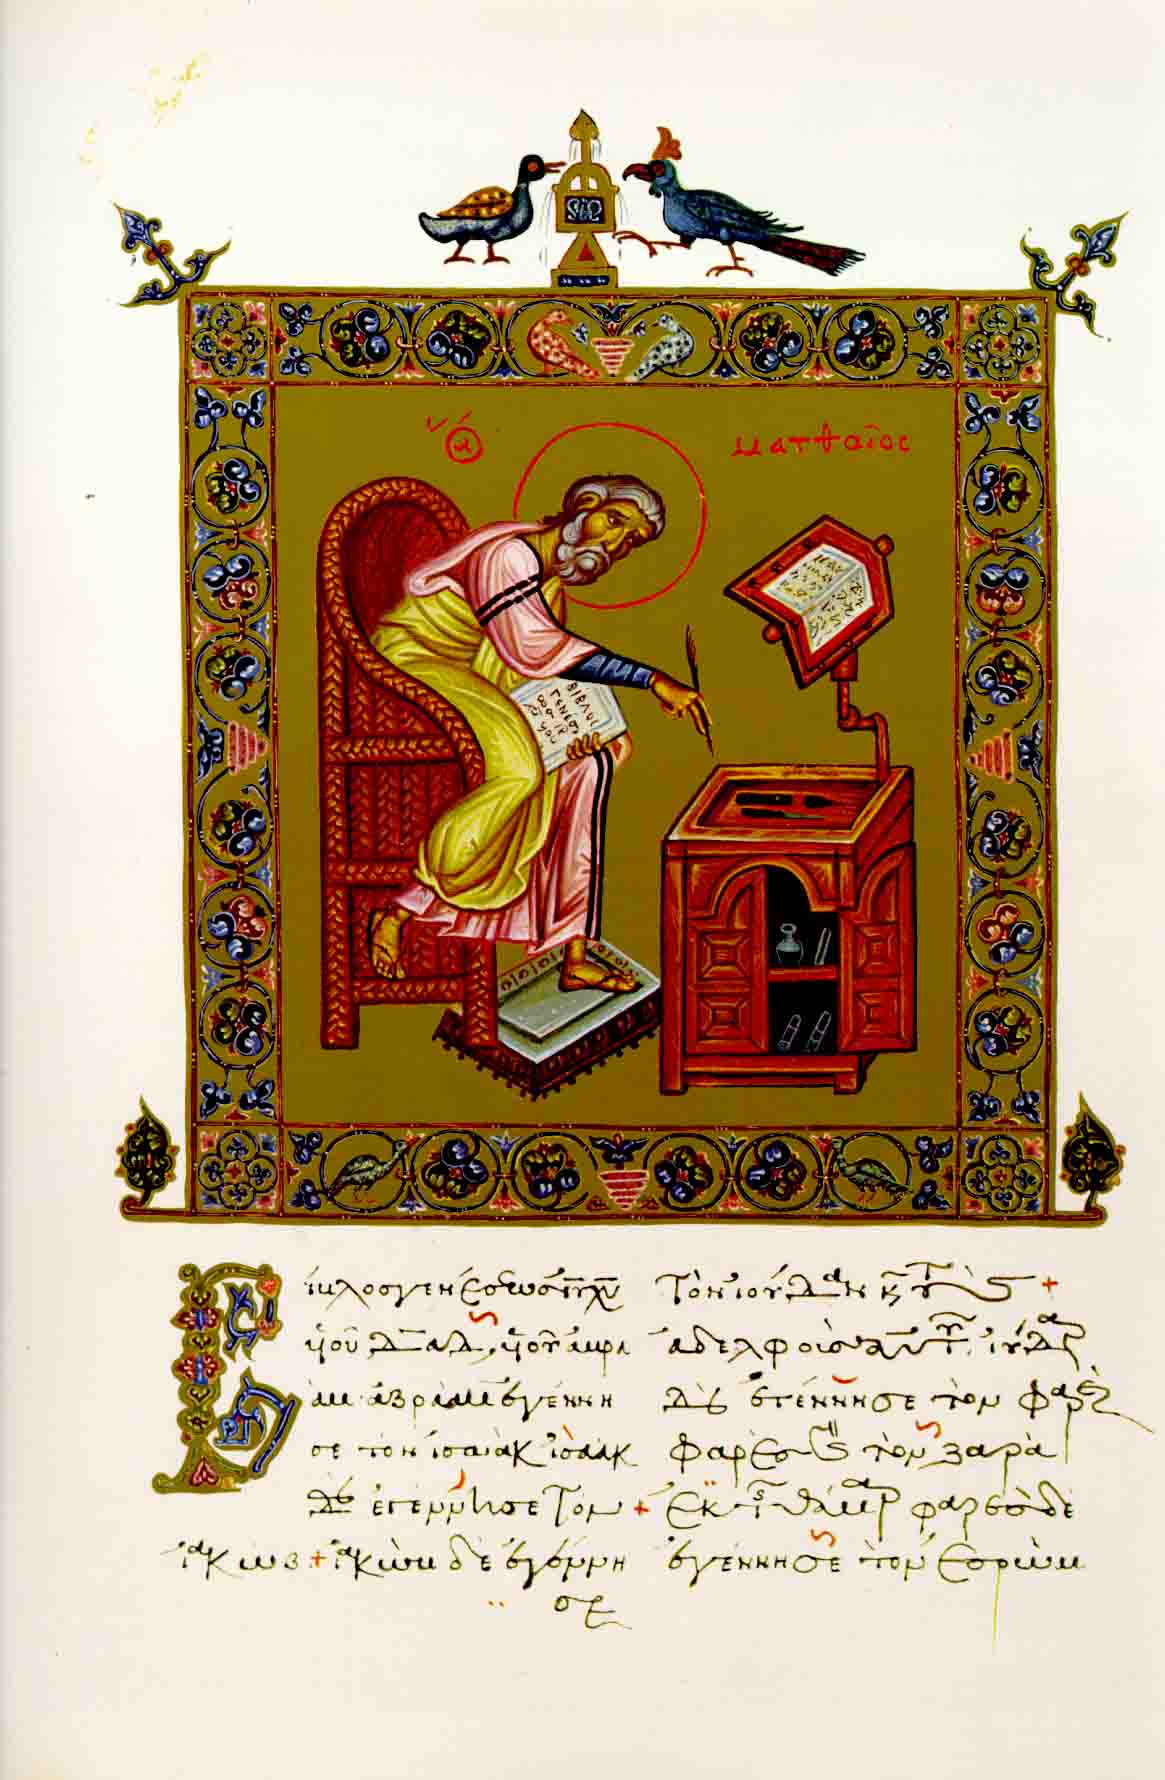 ὁ ἅ
ματθαῖος
ΒΙΒΛΟΣ
ΓΕΝΕΣ
Βίβλος γενέσεως ἰῦ χῦ
ὑοῦ δαδ, ὑοῦ ἀβρα
ὰμ· ἀβραὰμ ἐγέννη
σε τὸν ἰσαάκ ἰσαὰκ
δὲ ἐγέννησε τὸν
ἰακώβ + ἰακὼβ δὲ ἐγέννη
σε
τὸν ἰούδαν κ τοὺς +
ἀδελφοὺς αὐτοῦ. ἰούδας
δὲ ἐγέννησε τὸν φαρὲς
φαρὲς τὸν ζαρὰ
+ ἐκ τῆς θάμαρ φαρὲς δὲ
ἐγέννησε τὸν ἐσρώμ